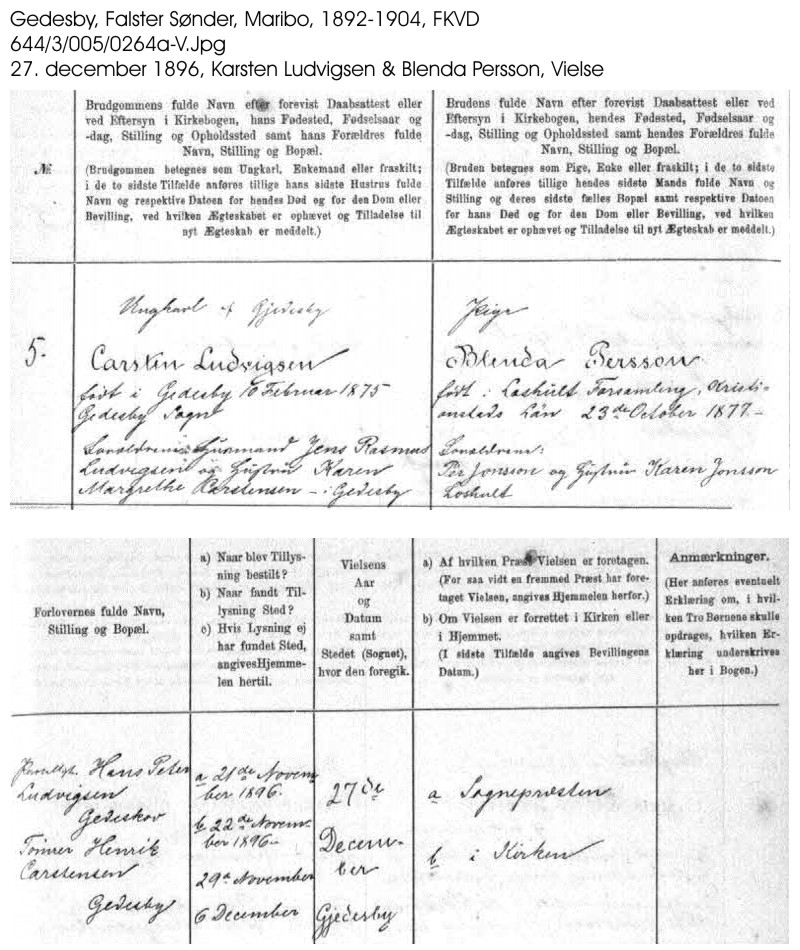 Gedesby, Falster Sønder, Maribo, 1892-1904, FKVD
644/3/005/0264a-V.Jpg
27. december 1896, Karsten Ludvigsen & Blenda Persson, Vielse
№
Brudgommens fulde Navn efter forevist Daabsattest eller
ved Eftersyn i Kirkebogen, hans Fødested, Fødselsaar og
-dag, Stilling og Opholdssted samt hans Forældres fulde
Navn, Stilling og Bopæl.
(Brudgommen betegnes som Ungkarl, Enkemand eller fraskilt;
i de to sidste Tilfælde anføres tillige hans sidste Hustrus fulde
Navn og respektive Datoen for hendes Død og for den Dom eller
Bevilling, ved hvilken Ægteskabet er ophævet og Tilladelse til
nyt Ægteskab er meddelt.)
Brudens fulde Navn efter forevist Daabsattest eller ved
Eftersyn i Kirkebogen, hendes Fødested, Fødselsaar og
-dag, Stilling og Opholdssted samt hendes Forældres fulde
Navn, Stilling og Bopæl.
(Bruden betegnes som Pige, Enke eller fraskilt; i de to sidste
Tilfælde anføres tillige hendes sidste Mands fulde Navn og
Stilling og deres sidste fælles Bopæl samt respektive Datoen
for hans Død og for den Dom eller Bevilling, ved hvilken
Ægteskabet er ophævet og Tilladelse til nyt Ægteskab er meddelt.)
5.
Ungkarl af Gjedesby
Carsten Ludvigsen
født i Gedesby 10 Februar 1875
Gedesby Sogn
Forældrene: Husmand Jens Rasmus
Ludvigsen og Hustru Karen
Margrethe Carstensen - i Gedesby
Pige
Blenda Persson
født i Loshult Forsamling, Kristi-
anstads Län 23de October 1877.-
Forældrene:
Per Jonsson og Hustru Karen Jonsson
Loshult
Forlovernes fulde Navn,
Stilling og Bopæl.
a) Naar blev Tillys-
ning bestilt?
b) Naar fandt Til-
lysning Sted?
c) Hvis Lysning ej
har fundet Sted,
angives Hjemme-
len hertil.
Vielsens
Aar
og
Datum
samt
Stedet (Sognet),
hvor den foregik.
a) Af hvilken Præst Vielsen er foretagen.
(For saa vidt en fremmed Præst har fore-
taget Vielsen, angives Hjemmelen herfor.)
b) Om Vielsen er forrettet i Kirken eller
i Hjemmet.
(I sidste Tilfælde angives Bevillingens
Datum.)
Anmærkninger.
(Her anføres eventuelt
Erklæring om, i hvil-
ken Tro Børnene skulle
opdrages, hvilken Er-
klæring underskrives
her i Bogen.)
Hans Peter
Ludvigsen
Gedeskov
Tømrer Henrik
Carstensen
Gedesby
a 21de Novem
ber 1896.
b 22de Novem-
ber 1896-
29de November
6 December
27de
Decem-
ber
Gjedesby
a Sognepræsten
b i Kirken